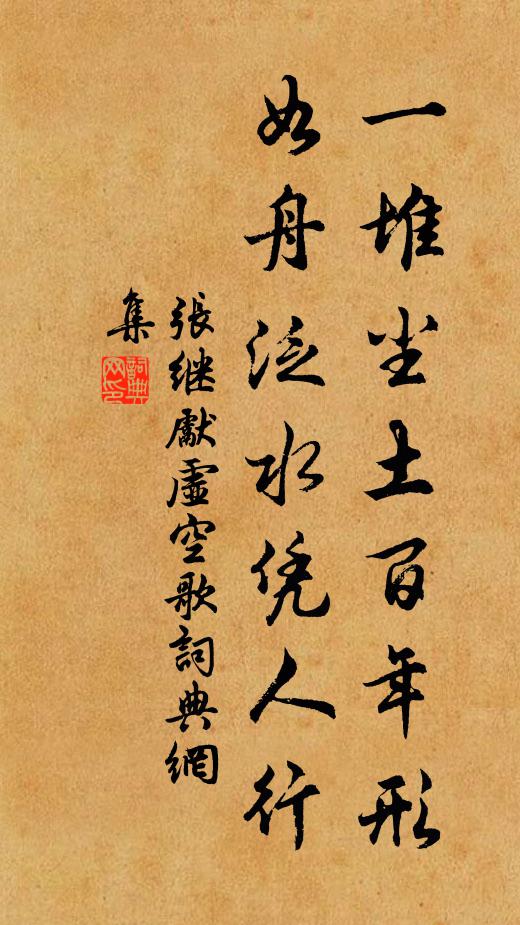 一堆尘土百年形
如舟泛水凭人行
張继獻虚空歌詞典網
集
詞典
网印